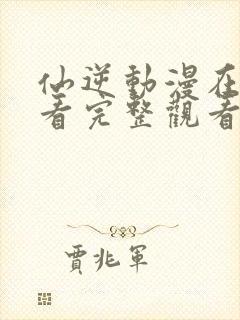 仙逆動漫在
看完整觀看
賈兆軍